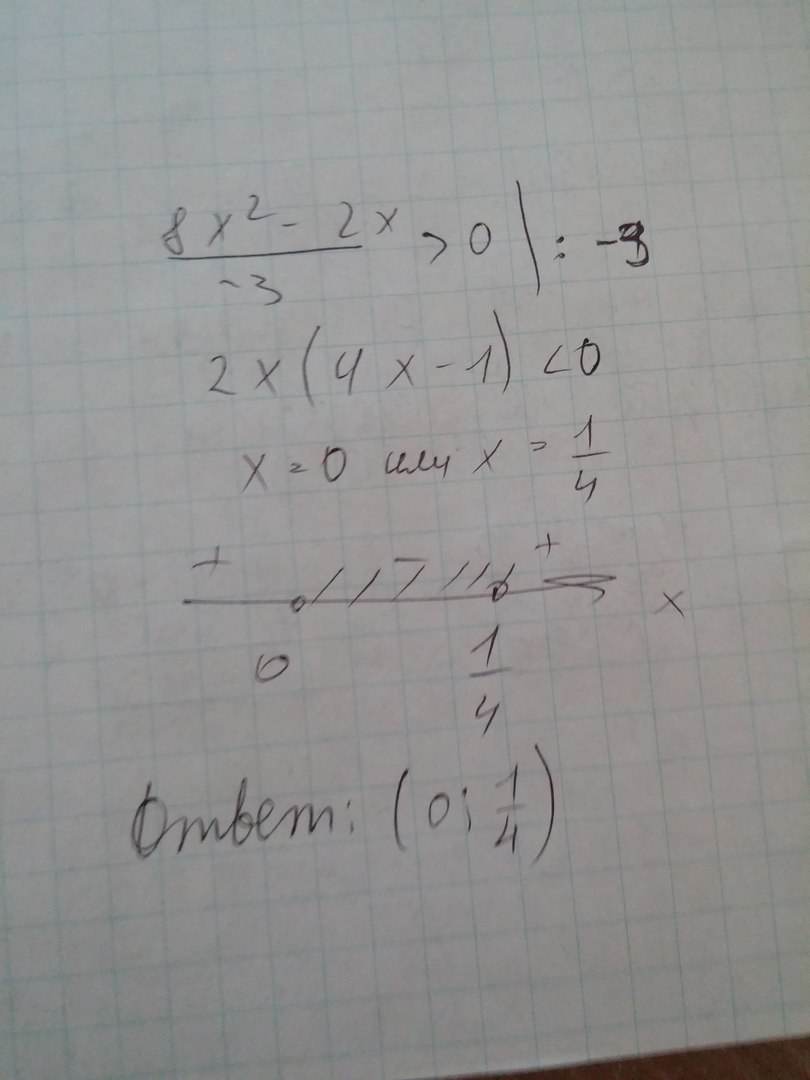 8x² - 2x
-3
> 0 | : -3
2x(4x-1) < 0
x = 0 или x = 1/4
+ - + x
0 1/4
Ответ: (0; 1/4)